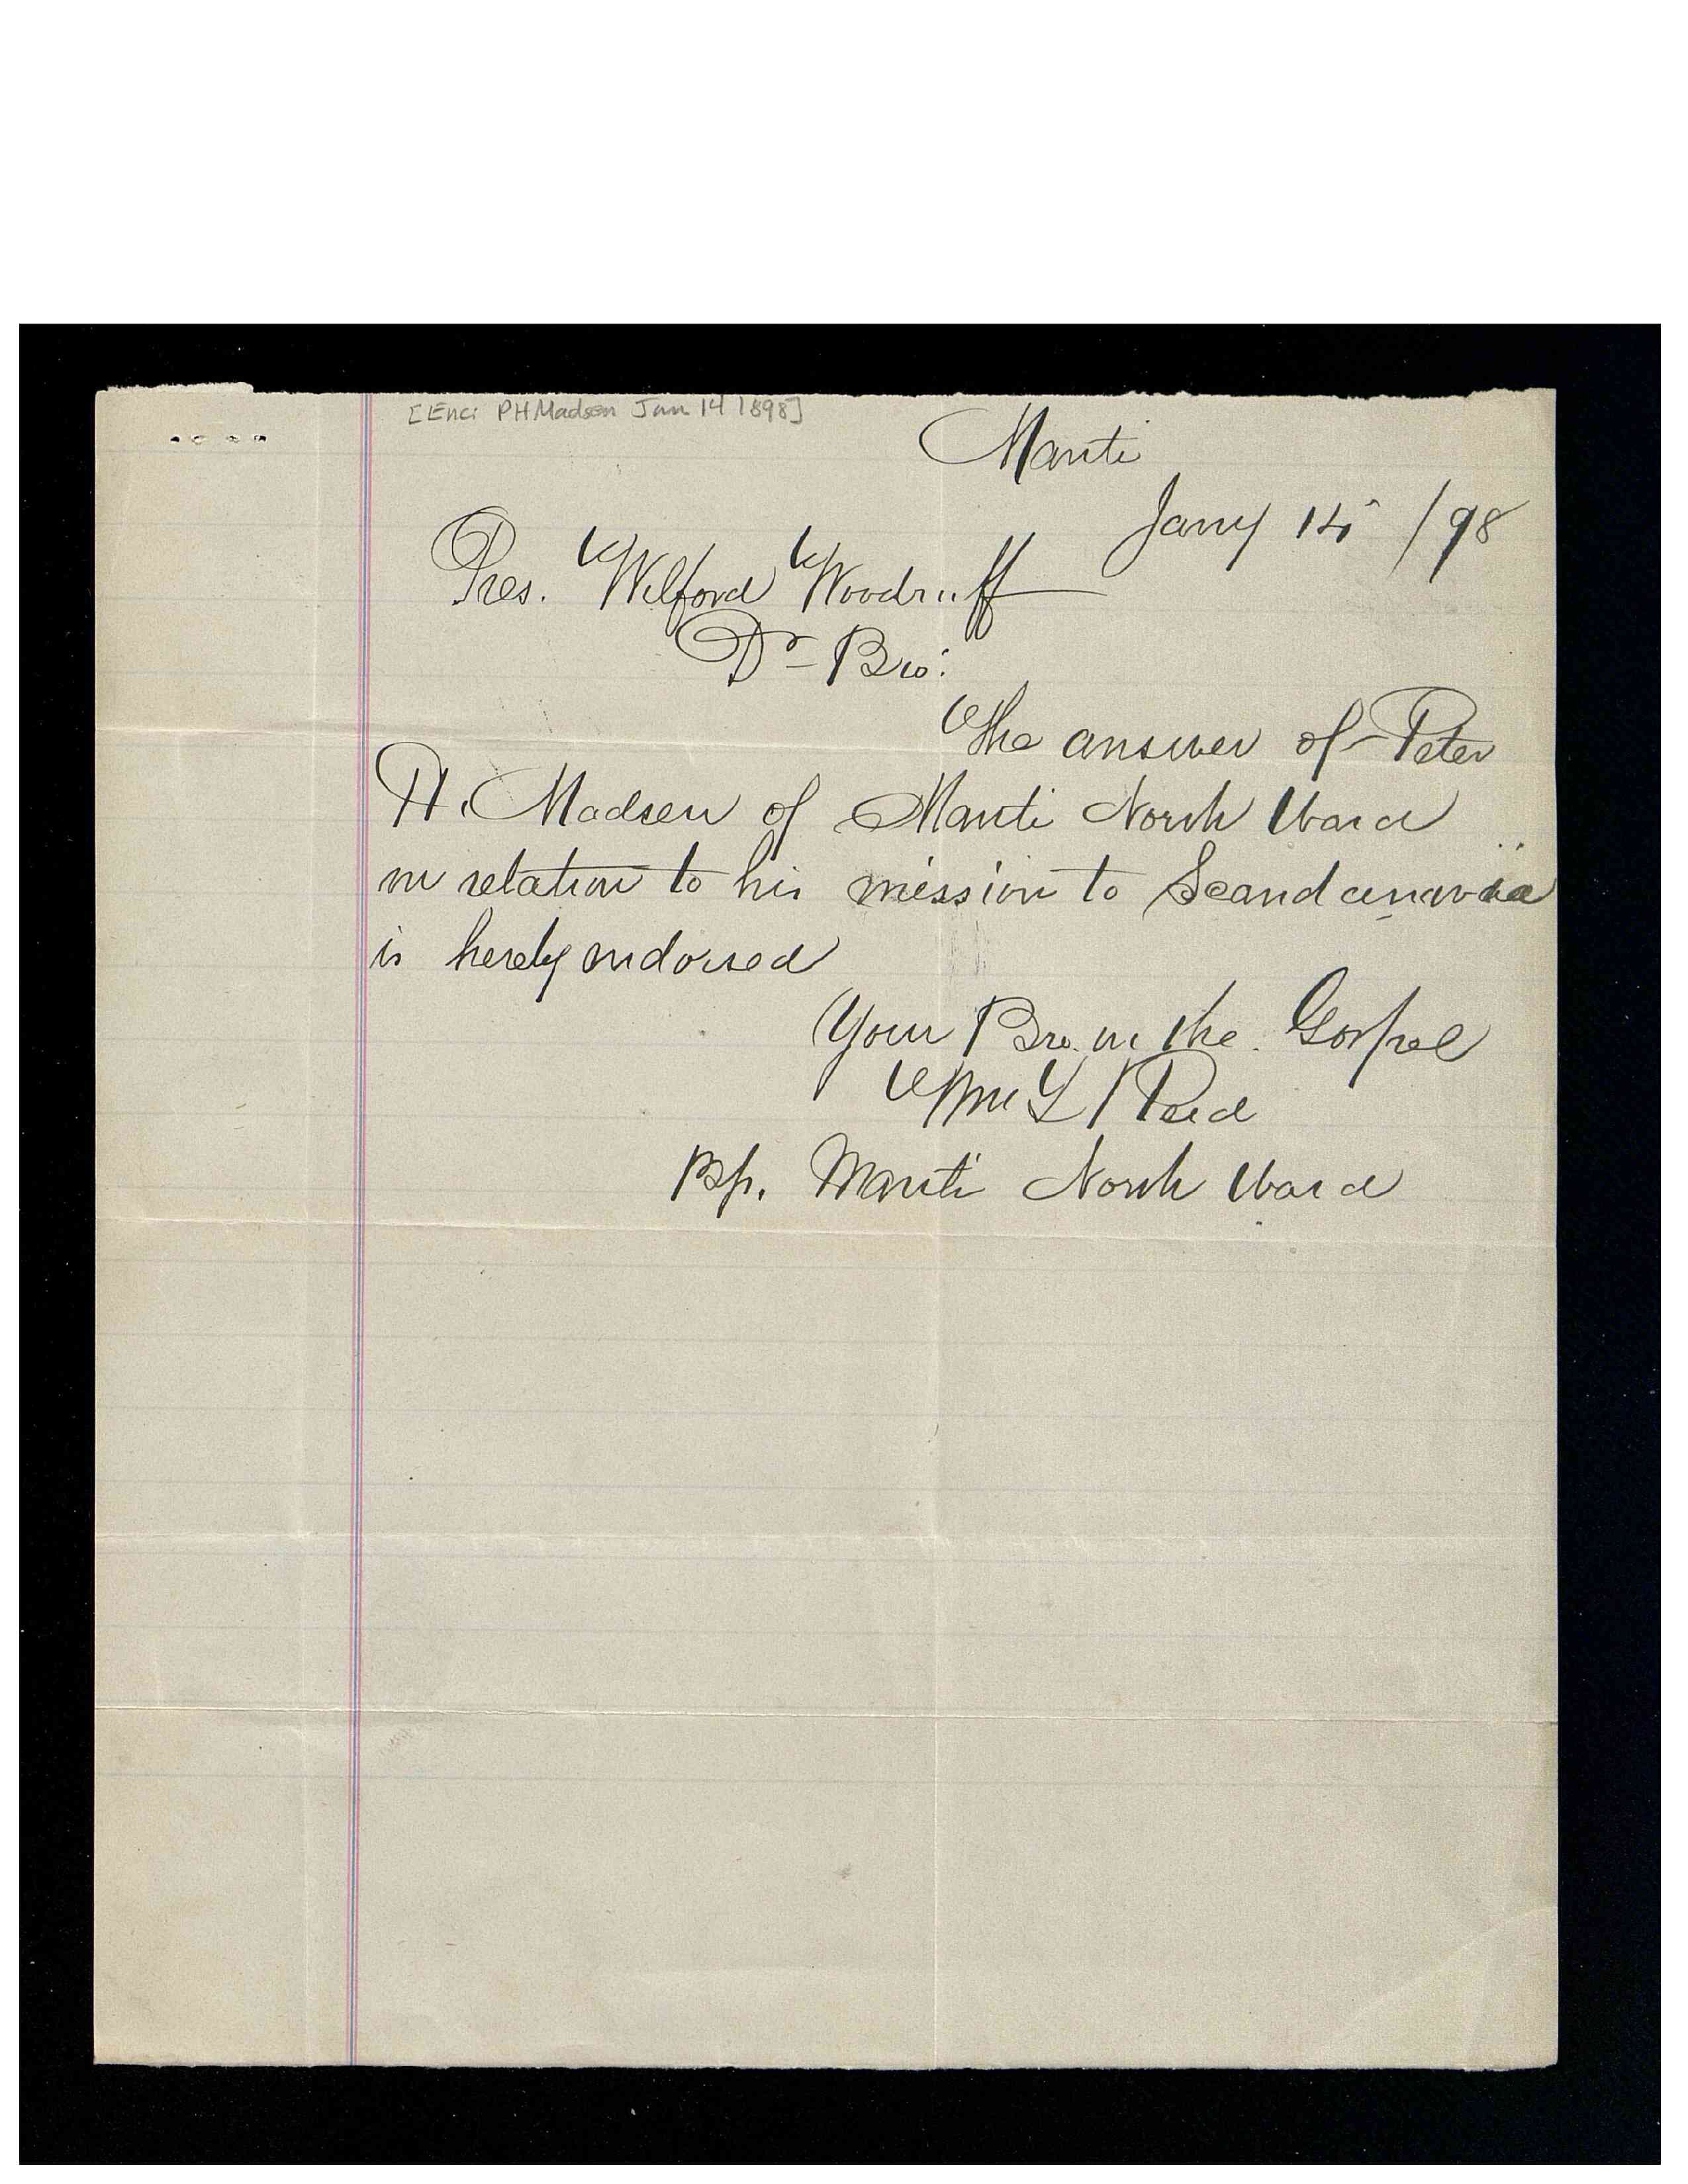 [Enci PHMadsen Jan 14 1898]
Manti
Jany 14 /98
Pres. Wilford Woodruff
Dr Bro:
The answer of Peter
H. Madsen of Manti North Ward
in relation to his mission to Scandanavia
is hereby endorsed
Your Bro. in the Gospel
Wm L Reid
Bp. Manti North Ward